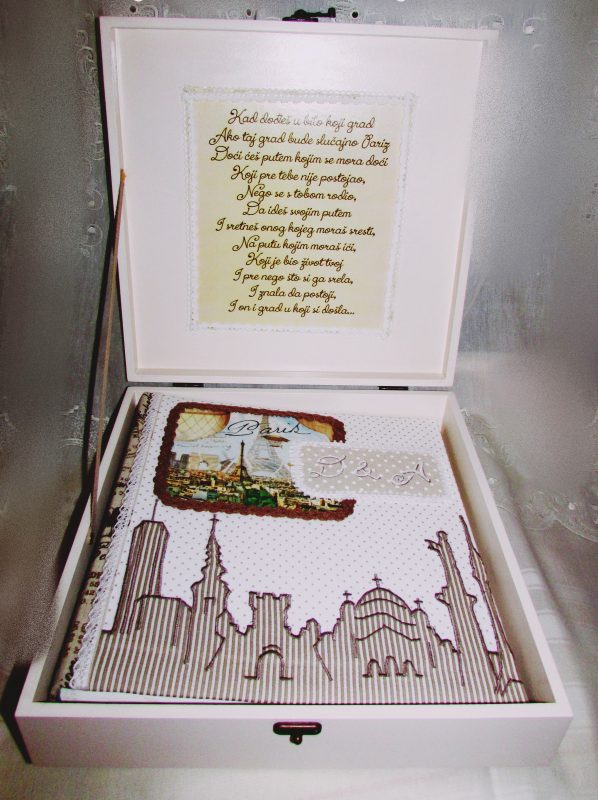 Kad dođeš u bilo koji grad
Ako taj grad bude slučajno Pariz
Doći ćeš putem kojim se mora doći
Koji pre tebe nije postojao,
Nego se s tobom rodio,
Da ideš svojim putem
I sretneš onog kojeg moraš sresti,
Na putu kojim moraš ići,
Koji je bio život tvoj
I pre nego što si ga srela,
I znala da postoji,
I on i grad u koji si došla...
Paris
D & A